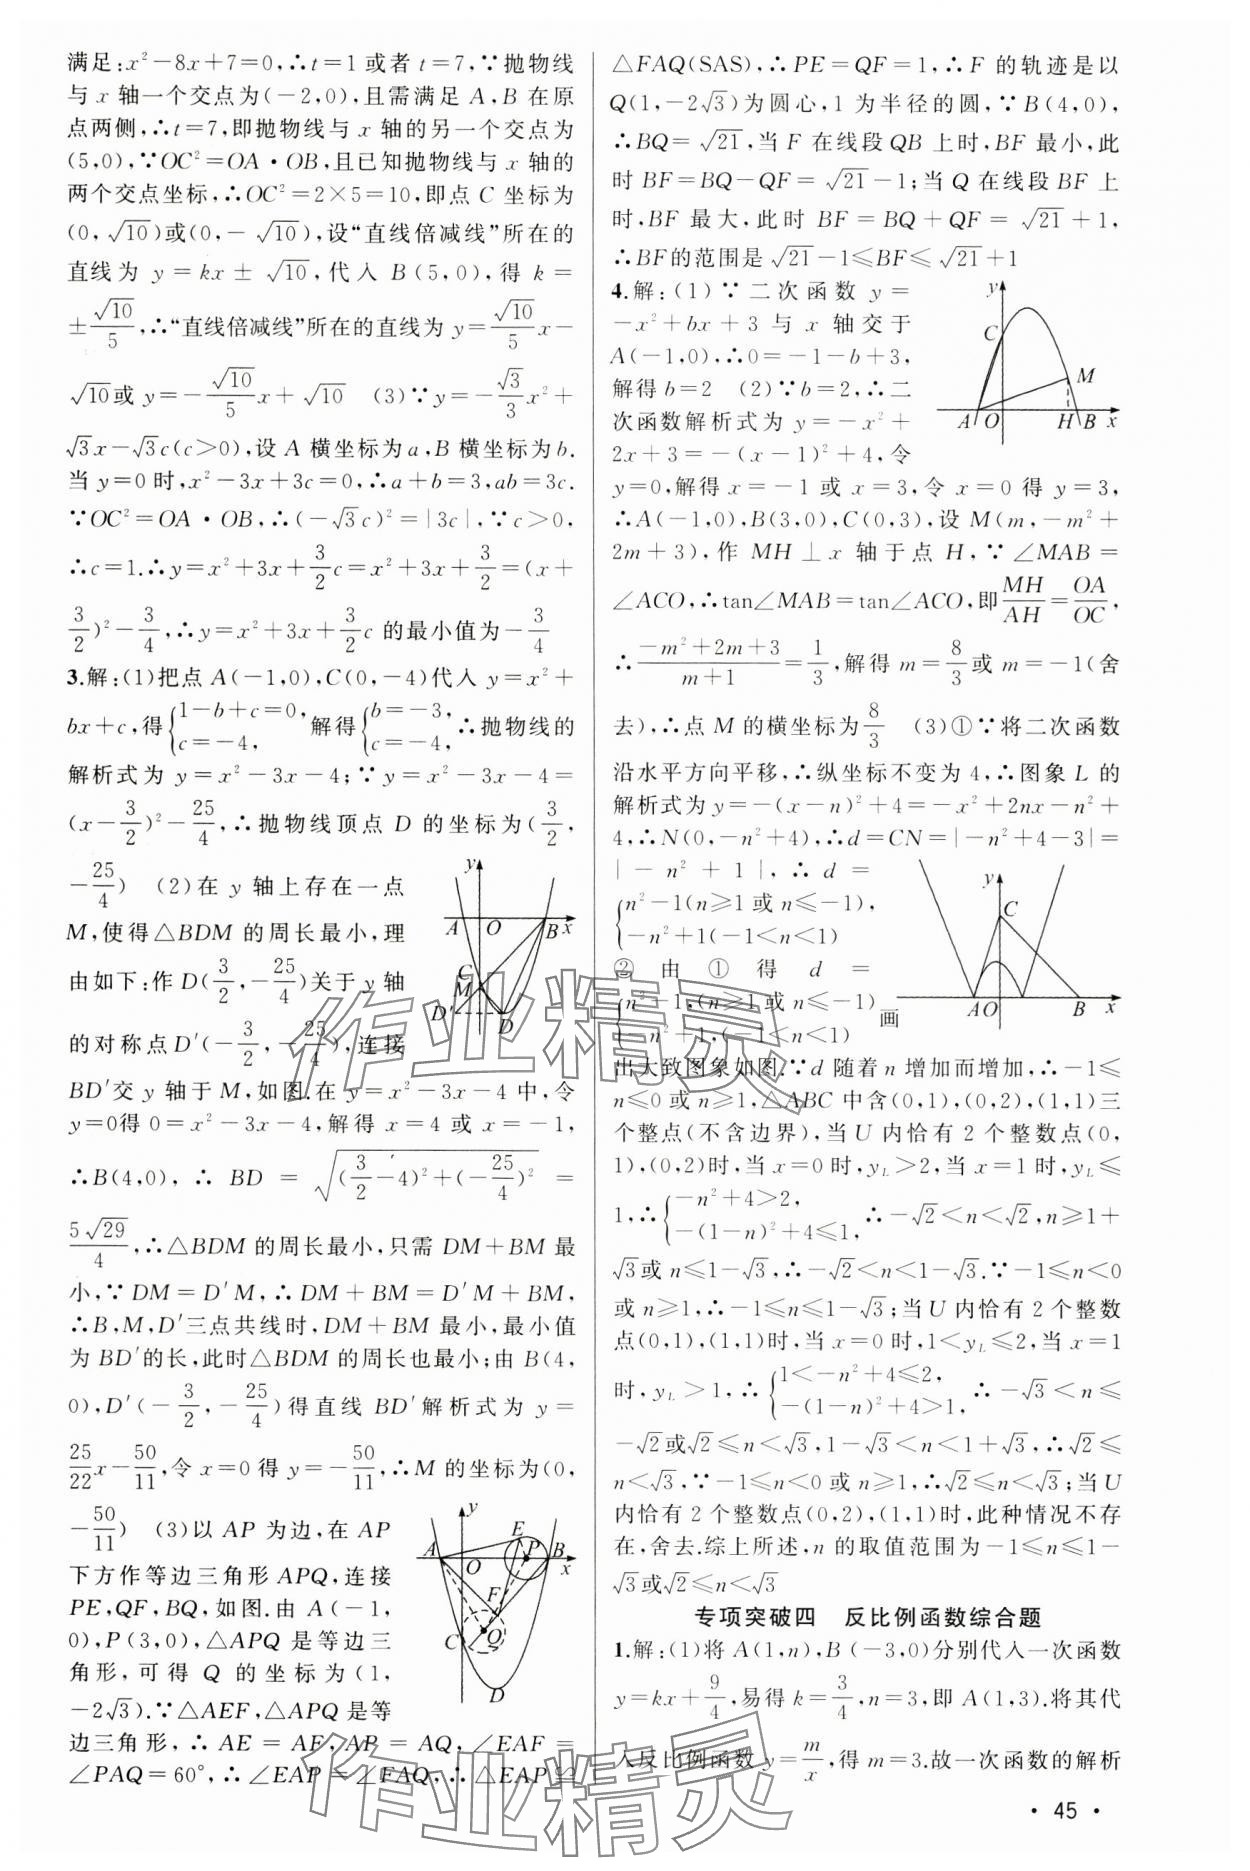 满足:x²-8x+7=0,∴t=1或者t=7,∵抛物线
与x轴一个交点为(-2,0),且需满足A,B在原
点两侧,∴t=7,即抛物线与x轴的另一个交点为
(5,0),∵OC²=OA·OB,且已知抛物线与x轴的
两个交点坐标,∴OC²=2×5=10,即点C坐标为
(0,√10)或(0,-√10),设“直线倍减线”所在的
直线为y=kx±√10,代入B(5,0),得k=
±√10/5,∴“直线倍减线”所在的直线为y=√10/5x-
√10或y=-√10/5x+√10 (3)∵y=-√3/3x²+
√3x-√3c(c>0),设A横坐标为a,B横坐标为b.
当y=0时,x²-3x+3c=0,∴a+b=3,ab=3c.
∵OC²=OA·OB,∴(-√3c)²=|3c|,∵c>0,
∴c=1.∴y=x²+3x+3/2c=x²+3x+3/2=(x+
3/2)²-3/4,∴y=x²+3x+3/2c的最小值为-3/4
3.解:(1)把点A(-1,0),C(0,-4)代入y=x²+
bx+c,得{1-b+c=0, c=-4, 解得{b=-3, c=-4, ∴抛物线的
解析式为y=x²-3x-4;∵y=x²-3x-4=
(x-3/2)²-25/4,∴抛物线顶点D的坐标为(3/2,
-25/4) (2)在y轴上存在一点
M,使得△BDM的周长最小,理
由如下:作D(3/2,-25/4)关于y轴
的对称点D′(-3/2,-25/4),连接
BD′交y轴于M,如图.在y=x²-3x-4中,令
y=0得0=x²-3x-4,解得x=4或x=-1,
∴B(4,0),∴BD=√((3/2-4)²+(-25/4)²)=
5√29/4,∴△BDM的周长最小,只需DM+BM最
小,∵DM=D′M,∴DM+BM=D′M+BM,
∴B,M,D′三点共线时,DM+BM最小,最小值
为BD′的长,此时△BDM的周长也最小;由B(4,
0),D′(-3/2,-25/4)得直线BD′解析式为y=
25/22x-50/11,令x=0得y=-50/11,∴M的坐标为(0,
-50/11) (3)以AP为边,在AP
下方作等边三角形APQ,连接
PE,QF,BQ,如图.由A(-1,
0),P(3,0),△APQ是等边三
角形,可得Q的坐标为(1,
-2√3).∵△AEF,△APQ是等
边三角形,∴AE=AF,AP=AQ,∠EAF=
∠PAQ=60°,∴∠EAP=∠FAQ,∴△EAP≌
y
A O B x
C
M
D′ D
y
E
A O P B x
F
C Q
D
△FAQ(SAS),∴PE=QF=1,∴F的轨迹是以
Q(1,-2√3)为圆心,1为半径的圆,∵B(4,0),
∴BQ=√21,当F在线段QB上时,BF最小,此
时BF=BQ-QF=√21-1;当Q在线段BF上
时,BF最大,此时BF=BQ+QF=√21+1,
∴BF的范围是√21-1≤BF≤√21+1
4.解:(1)∵二次函数y=
-x²+bx+3与x轴交于
A(-1,0),∴0=-1-b+3,
解得b=2 (2)∵b=2,∴二
次函数解析式为y=-x²+
2x+3=-(x-1)²+4,令
y=0,解得x=-1或x=3,令x=0得y=3,
∴A(-1,0),B(3,0),C(0,3),设M(m,-m²+
2m+3),作MH⊥x轴于点H,∵∠MAB=
∠ACO,∴tan∠MAB=tan∠ACO,即MH/AH=OA/OC,
∴(-m²+2m+3)/(m+1)=1/3,解得m=8/3或m=-1(舍
去),∴点M的横坐标为8/3 (3)①∵将二次函数
沿水平方向平移,∴纵坐标不变为4,∴图象L的
解析式为y=-(x-n)²+4=-x²+2nx-n²+
4,∴N(0,-n²+4),∴d=CN=|-n²+4-3|=
|-n²+1|,∴d=
{n²-1(n≥1或n≤-1),
-n²+1(-1<n<1)
②由①得d=
{n²-1,(n≥1或n≤-1)
-n²+1,(-1<n<1) 画
出大致图象如图.∵d随着n增加而增加,∴-1≤
n≤0或n≥1,△ABC中含(0,1),(0,2),(1,1)三
个整点(不含边界),当U内恰有2个整数点(0,
1),(0,2)时,当x=0时,y_L>2,当x=1时,y_L≤
1,∴{-n²+4>2, -(1-n)²+4≤1, ∴-√2<n<√2,n≥1+
√3或n≤1-√3,∴-√2<n<1-√3.∵-1≤n<0
或n≥1,∴-1≤n≤1-√3;当U内恰有2个整数
点(0,1),(1,1)时,当x=0时,1<y_L≤2,当x=1
时,y_L>1,∴{1<-n²+4≤2, -(1-n)²+4>1, ∴-√3<n≤
-√2或√2≤n<√3,1-√3<n<1+√3,∴√2≤
n<√3,∵-1≤n<0或n≥1,∴√2≤n<√3;当U
内恰有2个整数点(0,2),(1,1)时,此种情况不存
在,舍去.综上所述,n的取值范围为-1≤n≤1-
√3或√2≤n<√3
y
C
M
A O H B x
y
C
A O B x
专项突破四 反比例函数综合题
1.解:(1)将A(1,n),B(-3,0)分别代入一次函数
y=kx+9/4,易得k=3/4,n=3,即A(1,3).将其代
入反比例函数y=m/x,得m=3.故一次函数的解析
作业精灵
作业精灵
· 45 ·